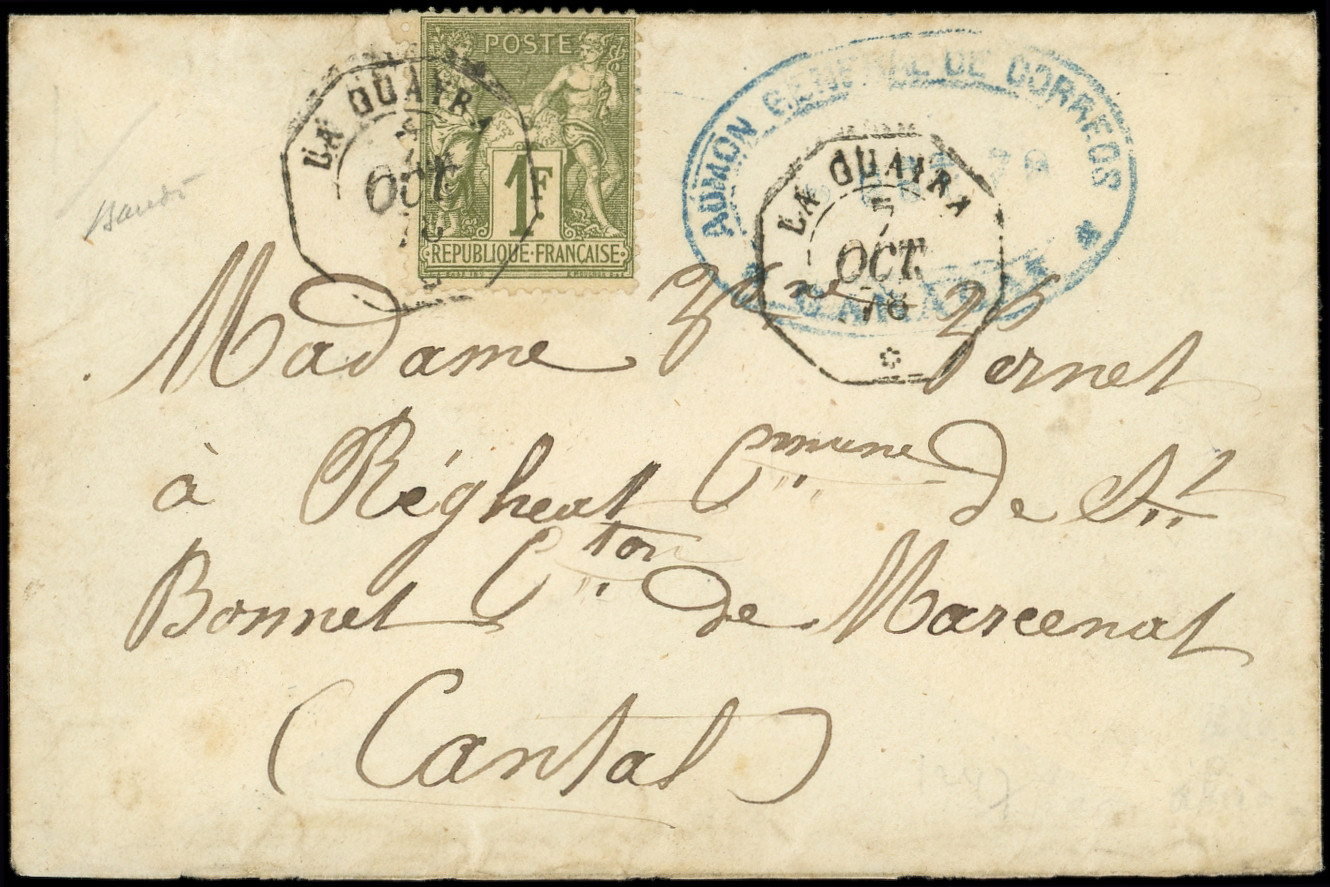 POSTE
1F
REPUBLIQUE FRANÇAISE
LA GUAYRA
OCT.
ADMON GENERAL DE CORREOS
CARACAS
LA GUAYRA
7
OCT.
78
Madame Vve Vernet
à Régheat Cmmune de St
Bonnet Cton de Marcenat
(Cantal)